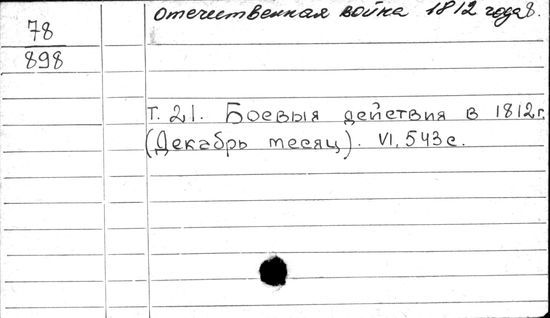 Отечественная война 1812 года 8.
78
898
Т. 21. Боевыя действия в 1812 г.
(Декабрь месяц). VI, 543 с.